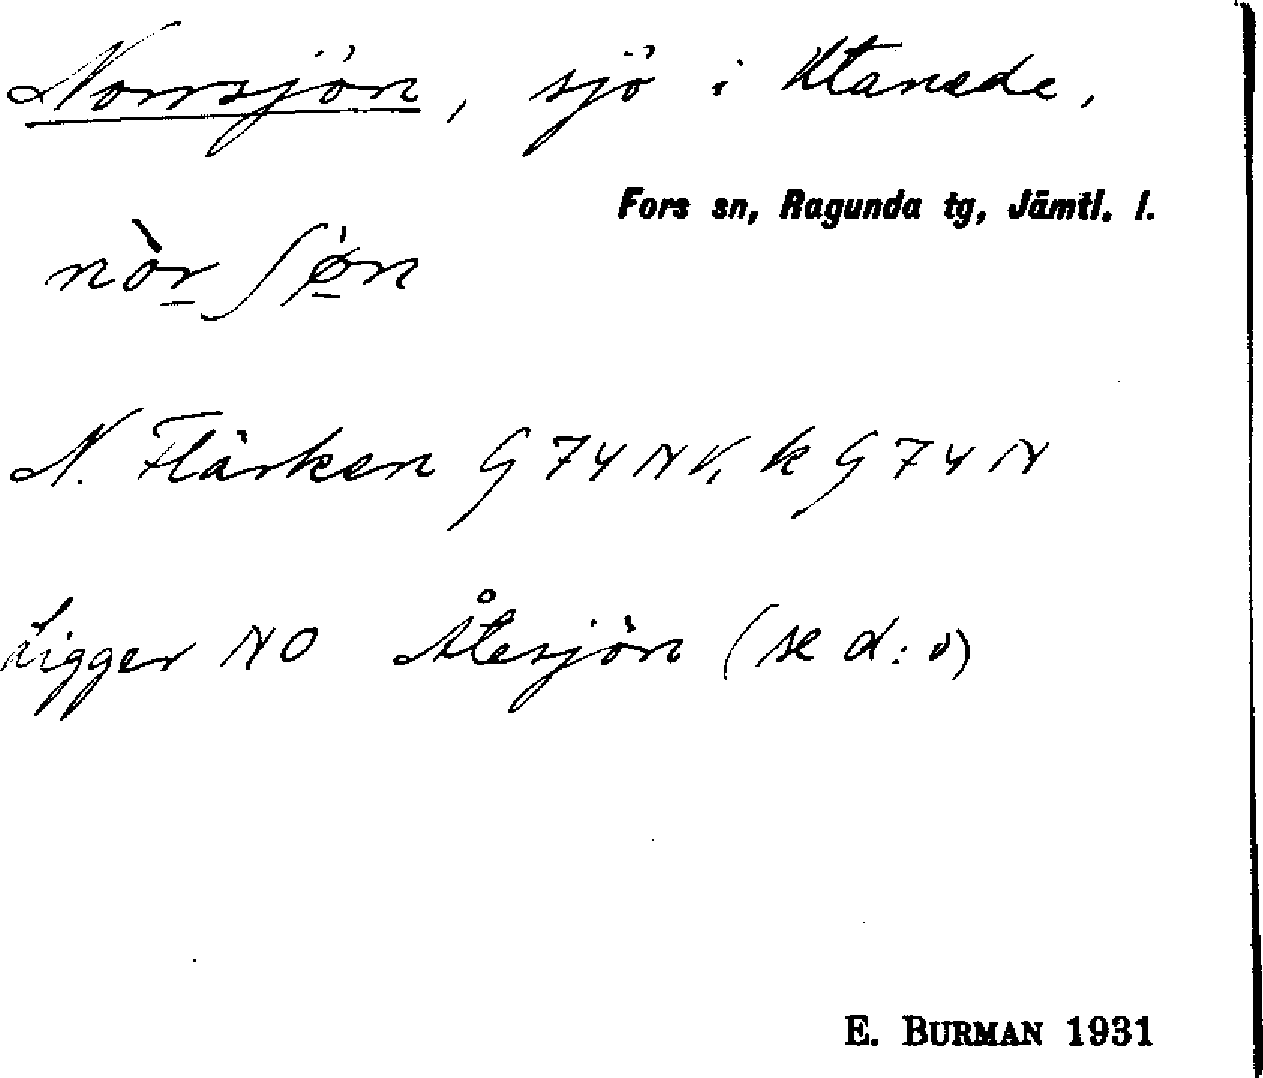 Norrsjön, sjö i Utanede,
Fors sn, Ragunda tg, Jämtl. l.
nòr ʃøn
N. Flärken G 74 NV, k G 74 N
Ligger NO Åtesjön (se d:o)
E. BURMAN 1931